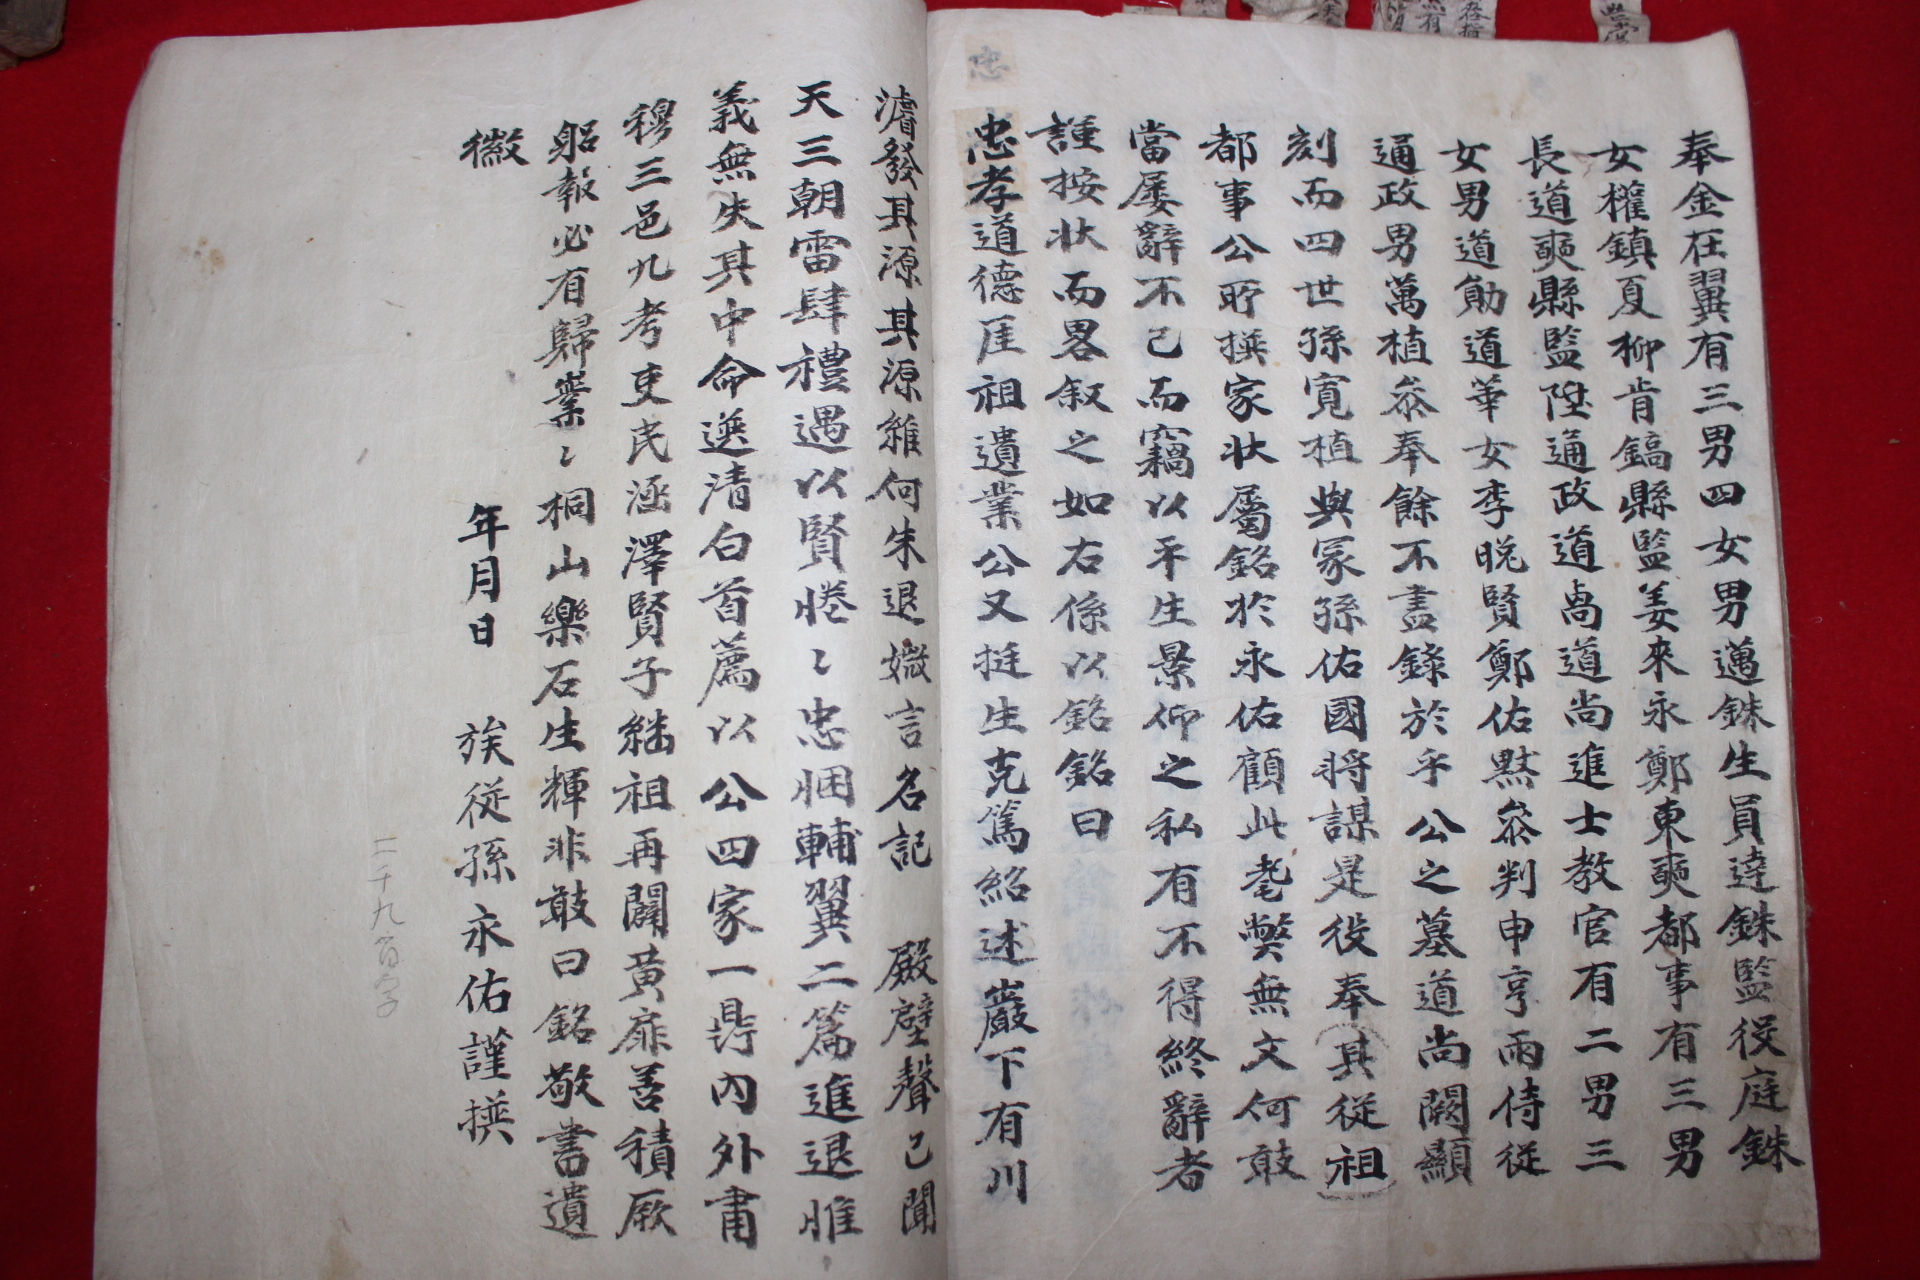 奉金在翼有三男四女男邁銖生員達銖監役庭銖
女權鎮夏柳肯鎬縣監姜來永鄭東奭都事有三男
長道奭縣監陞通政道卨道尚進士教官有二男三
女男道勛道華女李晚賢鄭佑黙參判申亨雨侍從
通政男萬植參奉餘不盡錄於乎公之墓道尚闕顯
刻而四世孫寬植與冢孫佑國將謀是役奉其從祖
都事公所撰家狀屬銘於永佑顧此耄弊無文何敢
當屡辭不已而竊以平生景仰之私有不得終辭者
謹按狀而畧叙之如右係以銘銘曰
忠孝道德厓祖遺業公又挺生克篤紹述巖下有川
濬發其源其源維何朱退媺言名記 殿壁聲已聞
天三朝雷肆禮遇以賢惓〻忠悃輔翼二篇進退惟
義無失其中命遂清白首薦以公四家一鼎內外甫
穆三邑九考吏民涵澤賢子継祖再闢黄扉善積厥
躬報必有歸嶪〻桐山樂石生輝非敢曰銘敬書遺
徽
年月日 族從孫永佑謹撰
二千九百字
忠